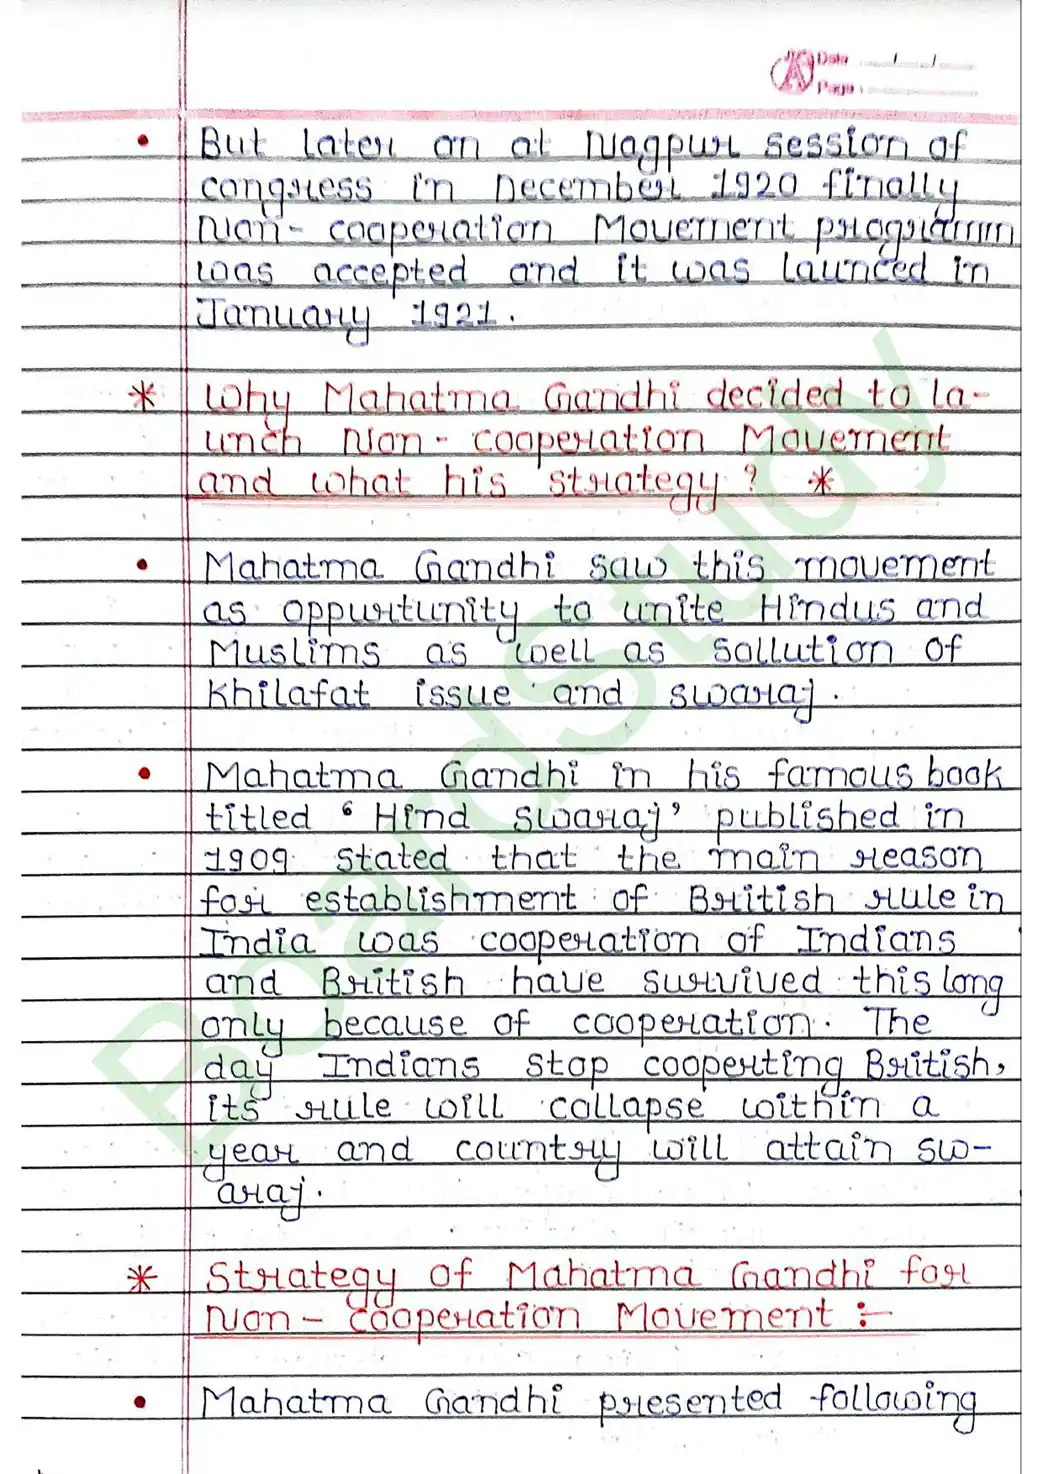 Date / /
Page :
• But later on at Nagpur session of
congress in December 1920 finally
Non- cooperation Movement program
was accepted and it was launced in
January 1921.
* Why Mahatma Gandhi decided to la-
unch Non - cooperation Movement
and what his strategy ? *
• Mahatma Gandhi saw this movement
as oppurtunity to unite Hindus and
Muslims as well as sollution of
khilafat issue and swaraj.
• Mahatma Gandhi in his famous book
titled ‘ Hind swaraj’ published in
1909 stated that the main reason
for establishment of British rule in
India was cooperation of Indians
and British have survived this long
only because of cooperation. The
day Indians stop cooperting British,
its rule will collapse within a
year and country will attain sw-
araj.
* Strategy of Mahatma Gandhi for
Non - cooperation Movement :-
• Mahatma Gandhi presented following
BoardStudy